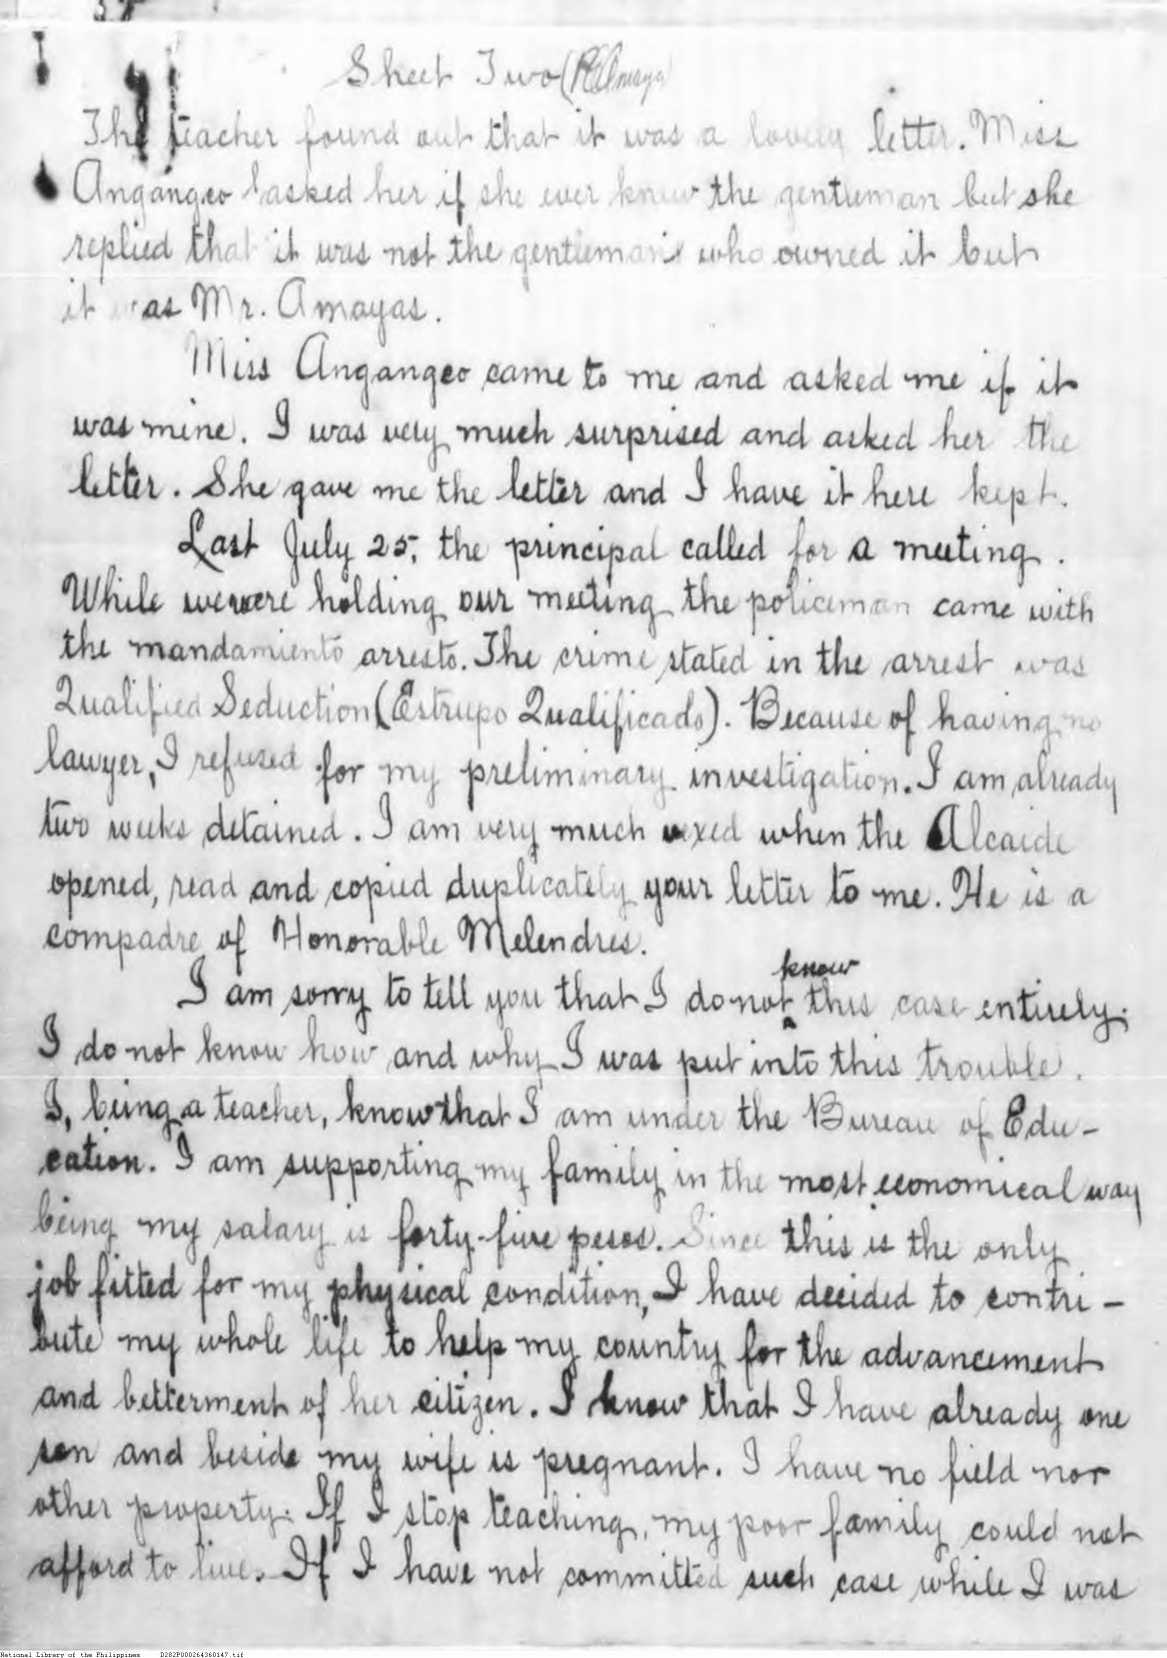 Sheet Two (R. Amaya
The teacher found out that it was a lovely letter. Miss
Angangco asked her if she ever knew the gentleman but she
replied that it was not the gentleman's who owned it but
it was Mr. Amayas.
Miss Angangco came to me and asked me if it
was mine. I was very much surprised and asked her the
letter. She gave me the letter and I have it here kept.
Last July 25, the principal called for a meeting.
While we were holding our meeting the policeman came with
the mandamiento arresto. The crime stated in the arrest was
Qualified Seduction (Estrupo Qualificado). Because of having no
lawyer, I refused for my preliminary investigation. I am already
two weeks detained. I am very much vexed when the Alcaide
opened, read and copied duplicately your letter to me. He is a
compadre of Honorable Melendres.
I am sorry to tell you that I do not know this case entirely.
I do not know how and why I was put into this trouble.
I, being a teacher, know that I am under the Bureau of Edu-
cation. I am supporting my family in the most economical way
being my salary is forty-five pesos. Since this is the only
job fitted for my physical condition, I have decided to contri-
bute my whole life to help my country for the advancement
and betterment of her citizen. I know that I have already one
son and beside my wife is pregnant. I have no field nor
other property. If I stop teaching, my poor family could not
afford to live. If I have not committed such case while I was
National Library of the Philippines D282P000264360147.tif